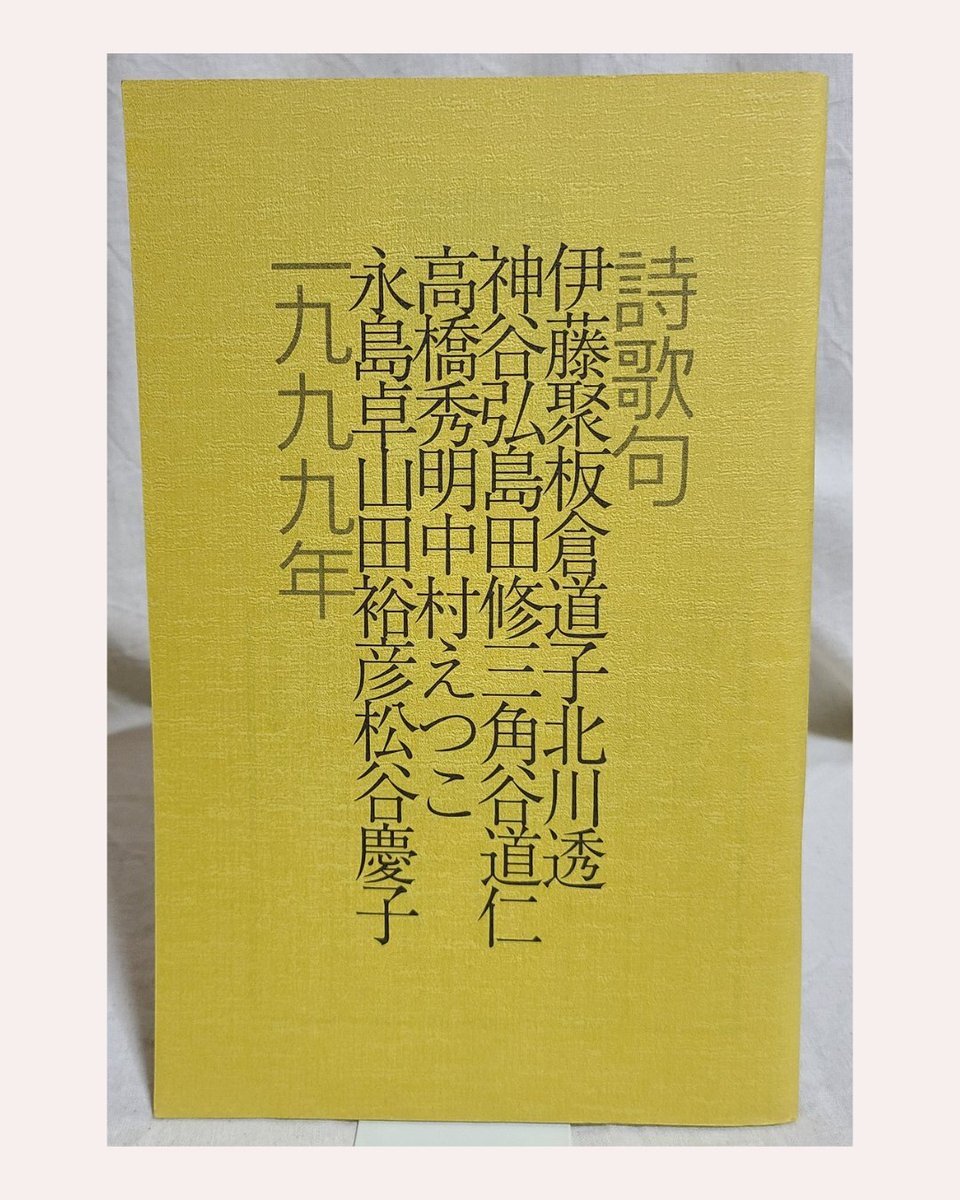 詩歌句
伊藤聚板倉道子北川透
神谷弘島田修三角谷道仁
高橋秀明中村えつこ
永島卓山田裕彦松谷慶子
一九九九年